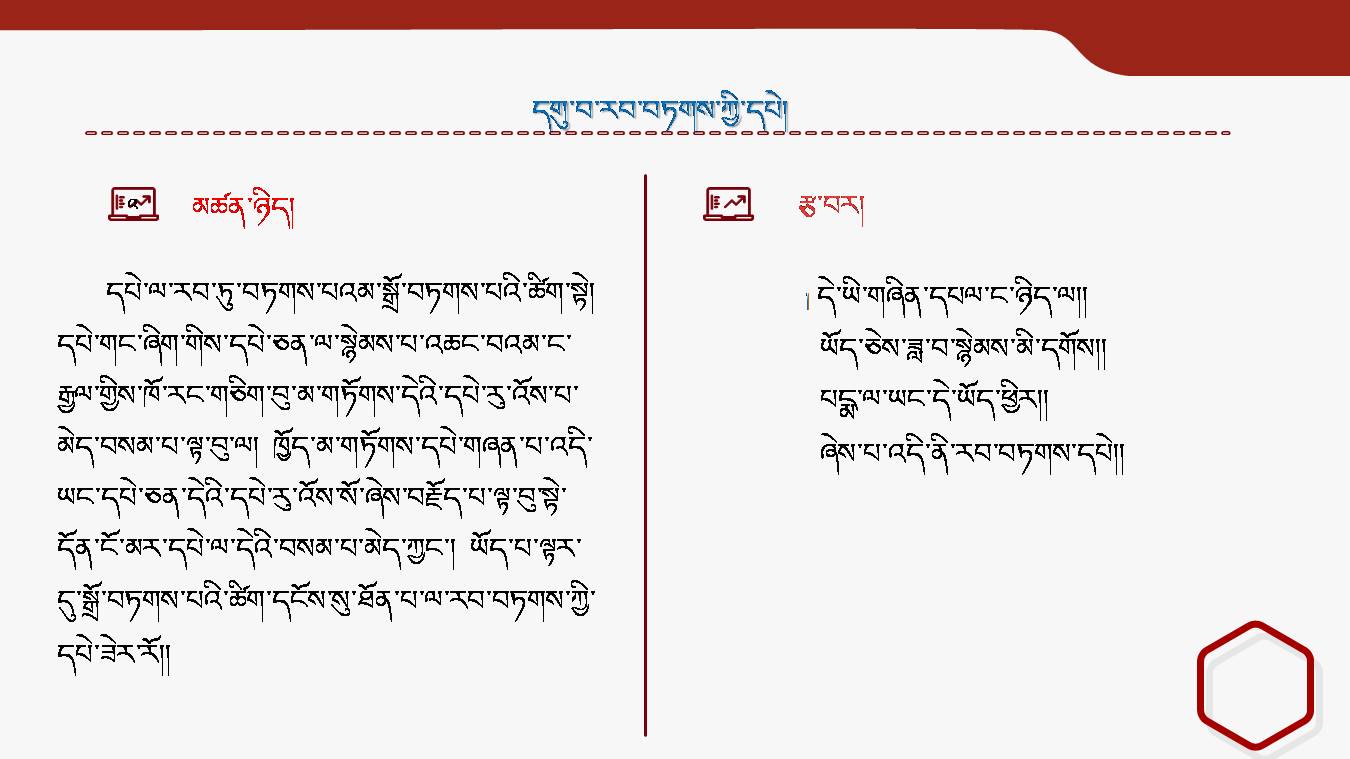 དགུ་བ་རབ་བཏགས་ཀྱི་དཔེ།
མཚན་ཉིད།
དཔེ་ལ་རབ་ཏུ་བཏགས་པའམ་སྒྲོ་བཏགས་པའི་ཚིག་སྟེ།
དཔེ་གང་ཞིག་གིས་དཔེ་ཅན་ལ་སྙེམས་པ་འཆང་བའམ་ང་
རྒྱལ་གྱིས་ཁོ་རང་གཅིག་བུ་མ་གཏོགས་དེའི་དཔེ་རུ་འོས་པ་
མེད་བསམ་པ་ལྟ་བུ་ལ། ཁྱོད་མ་གཏོགས་དཔེ་གཞན་པ་འདི་
ཡང་དཔེ་ཅན་དེའི་དཔེ་རུ་འོས་སོ་ཞེས་བརྗོད་པ་ལྟ་བུ་སྟེ་
དོན་ངོ་མར་དཔེ་ལ་དེའི་བསམ་པ་མེད་ཀྱང་། ཡོད་པ་ལྟར་
དུ་སྒྲོ་བཏགས་པའི་ཚིག་དངོས་སུ་ཐོན་པ་ལ་རབ་བཏགས་ཀྱི་
དཔེ་ཟེར་རོ།།
རྩ་བར།
། དེ་ཡི་གཞིན་དཔལ་ང་ཉིད་ལ།།
ཡོད་ཅེས་ཟླ་བ་སྙེམས་མི་དགོས།།
པདྨ་ལ་ཡང་དེ་ཡོད་ཕྱིར།།
ཞེས་པ་འདི་ནི་རབ་བཏགས་དཔེ།།